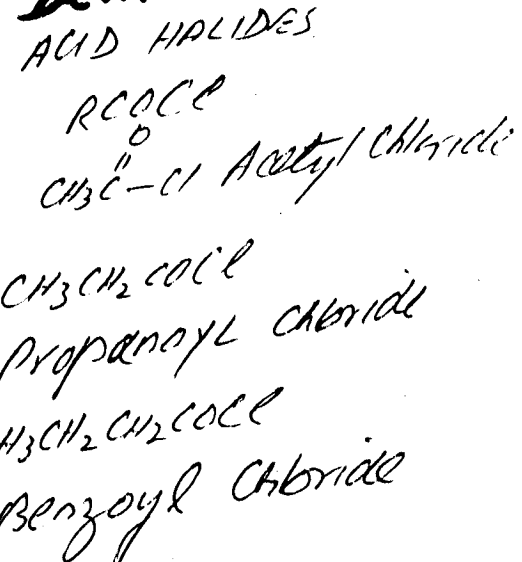 ACID HALIDES
RCOCl
O
CH3C-Cl Acetyl Chloride
CH3CH2COCl
Propanoyl Chloride
H3CH2CH2COCl
Benzoyl Chloride